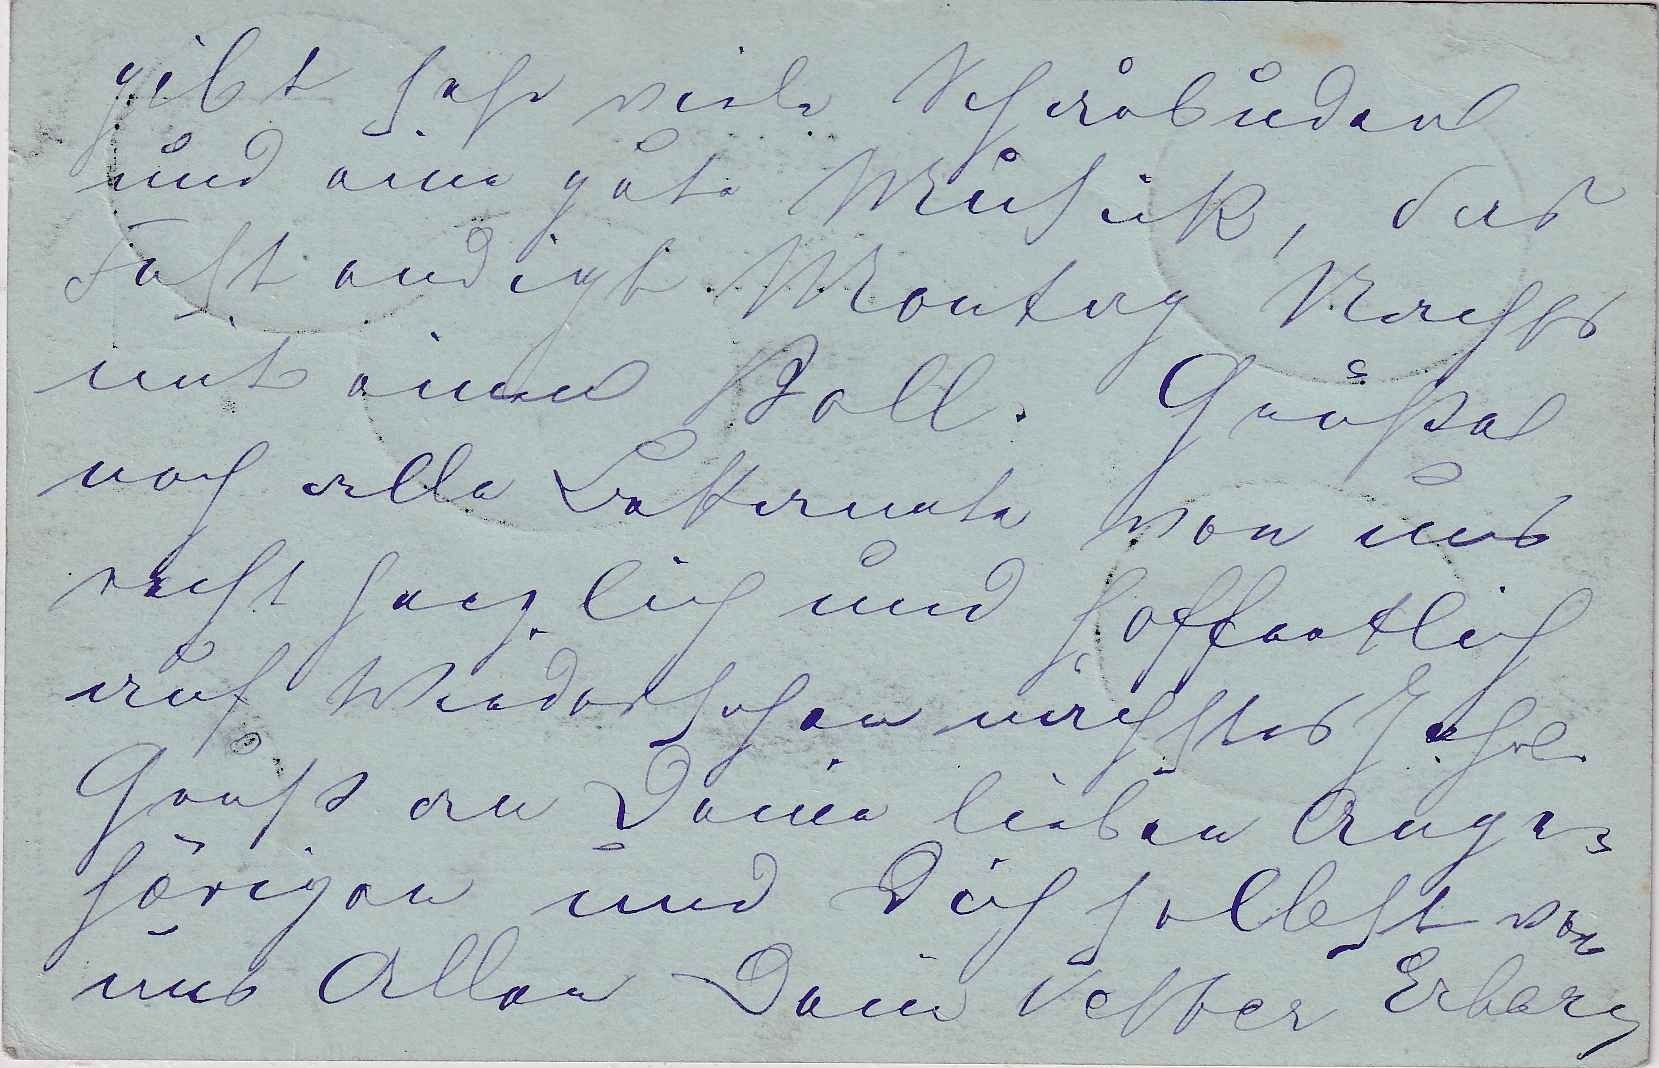 gibt sehr viele Schaubuden
und eine gute Musik, das
Fest endigt Montag Nachts
mit einem Ball. Grüßet
noch alle Bekannte von uns
recht herzlich und hoffentlich
auf Wiedersehen nächstes Jahr.
Gruß an Deine lieben Ange-
hörigen und Dich selbst von
uns Allen Dein Vetter